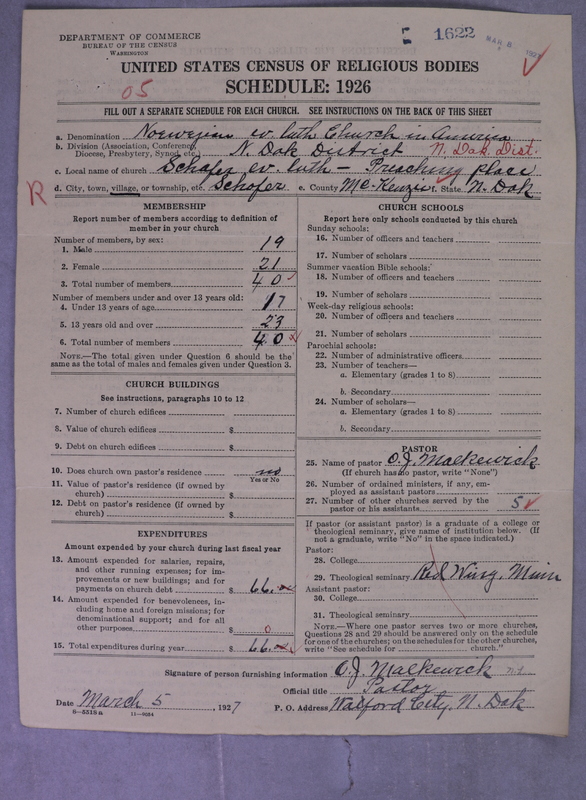 DEPARTMENT OF COMMERCE
BUREAU OF THE CENSUS
WASHINGTON
1622
MAR 8 1927
UNITED STATES CENSUS OF RELIGIOUS BODIES
05
SCHEDULE: 1926
FILL OUT A SEPARATE SCHEDULE FOR EACH CHURCH. SEE INSTRUCTIONS ON THE BACK OF THIS SHEET
a. Denomination Norwegian Ev Luth Church in America
b. Division (Association, Conference, Diocese, Presbytery, Synod, etc.) N. Dak District N. Dak Dist.
c. Local name of church Schafer Ev. Luth - Preaching place
R
d. City, town, village, or township, etc. Schafer e. County Mc-Kenzie f. State N. Dak
MEMBERSHIP
Report number of members according to definition of member in your church
Number of members, by sex:
1. Male 19
2. Female 21
3. Total number of members 40
Number of members under and over 13 years old:
4. Under 13 years of age 17
5. 13 years old and over 23
6. Total number of members 40
NOTE.—The total given under Question 6 should be the same as the total of males and females given under Question 3.
CHURCH BUILDINGS
See instructions, paragraphs 10 to 12
7. Number of church edifices
8. Value of church edifices $
9. Debt on church edifices $
10. Does church own pastor's residence no
Yes or No
11. Value of pastor's residence (if owned by church) $
12. Debt on pastor's residence (if owned by church) $
EXPENDITURES
Amount expended by your church during last fiscal year
13. Amount expended for salaries, repairs, and other running expenses; for improvements or new buildings; and for payments on church debt $ 66.
14. Amount expended for benevolences, including home and foreign missions; for denominational support; and for all other purposes $ 0
15. Total expenditures during year $ 66.
CHURCH SCHOOLS
Report here only schools conducted by this church
Sunday schools:
16. Number of officers and teachers
17. Number of scholars
Summer vacation Bible schools:
18. Number of officers and teachers
19. Number of scholars
Week-day religious schools:
20. Number of officers and teachers
21. Number of scholars
Parochial schools:
22. Number of administrative officers
23. Number of teachers—
a. Elementary (grades 1 to 8)
b. Secondary
24. Number of scholars—
a. Elementary (grades 1 to 8)
b. Secondary
PASTOR
25. Name of pastor O.J. Malkewick
(If church has no pastor, write "None")
26. Number of ordained ministers, if any, employed as assistant pastors
27. Number of other churches served by the pastor or his assistants 5
If pastor (or assistant pastor) is a graduate of a college or theological seminary, give name of institution below. (If not a graduate, write "No" in the space indicated.)
Pastor:
28. College
29. Theological seminary Red Wing, Minn
Assistant pastor:
30. College
31. Theological seminary
NOTE.—Where one pastor serves two or more churches, Questions 28 and 29 should be answered only on the schedule for one of the churches; on the schedules for the other churches, write "See schedule for church."
Signature of person furnishing information O.J. Malkewick
Official title Pastor
Date March 5, 1927
P. O. Address Watford City, N. Dak
8—5518a 11—9034